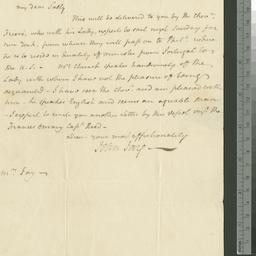 my dear Sally
This will be delivered to you by the Chev.r
Freire, who with his Lady, expects to sail next Sunday for
New York, from whence they will pass on to Phil.a where
he is to reside as minister from Portugal to
the U.S. — Mrs Church speaks handsomely of the
Lady with whom I have not the pleasure of being
acquainted. I have seen the Chev.r and am pleased with
him — he speaks English and seems an agreeable man
I expect to write you another letter by this Vessel viz.t the
Frances Henry Capt.
adieu your most affectionately
John Jay
Mrs Jay